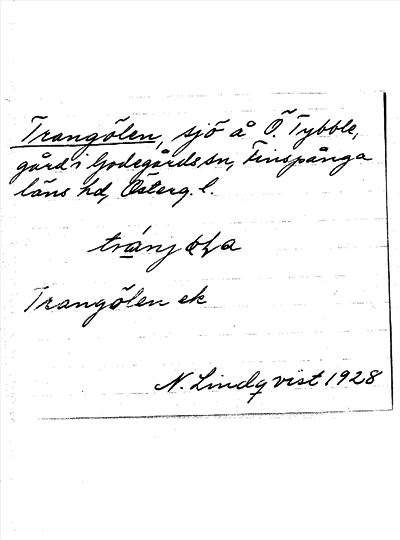 Trangölen, sjö å Ö. Tybble,
gård i Godegårds sn, Finspånga
läns hd, Österg. l.
Trangölen ek
N. Lindqvist 1928